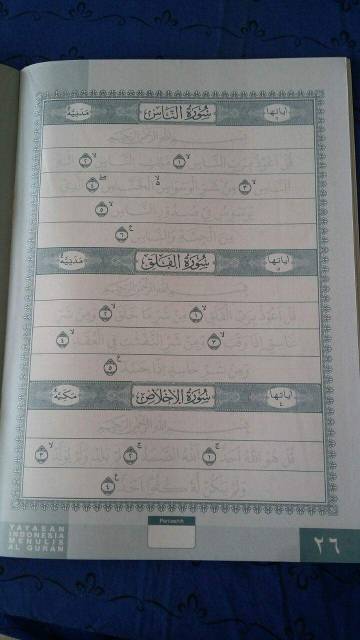 اياتها ٦ سُورَةُ النَّاسِ مَدَنِيَّةٌ
بِسْمِ اللّٰهِ الرَّحْمٰنِ الرَّحِيْمِ
قُلْ اَعُوْذُ بِرَبِّ النَّاسِۙ ١ مَلِكِ النَّاسِۙ ٢ اِلٰهِ
النَّاسِۙ ٣ مِنْ شَرِّ الْوَسْوَاسِ ە الْخَنَّاسِۖ ٤ الَّذِيْ
يُوَسْوِسُ فِيْ صُدُوْرِ النَّاسِۙ ٥
مِنَ الْجِنَّةِ وَالنَّاسِ ٦
اياتها ٥ سُورَةُ الْفَلَقِ مَدَنِيَّةٌ
بِسْمِ اللّٰهِ الرَّحْمٰنِ الرَّحِيْمِ
قُلْ اَعُوْذُ بِرَبِّ الْفَلَقِۙ ١ مِنْ شَرِّ مَا خَلَقَۙ ٢ وَمِنْ شَرِّ
غَاسِقٍ اِذَا وَقَبَۙ ٣ وَمِنْ شَرِّ النَّفّٰثٰتِ فِى الْعُقَدِۙ ٤
وَمِنْ شَرِّ حَاسِدٍ اِذَا حَسَدَ ٥
اياتها ٤ سُورَةُ الْاِخْلَاصِ مَكِّيَّةٌ
بِسْمِ اللّٰهِ الرَّحْمٰنِ الرَّحِيْمِ
قُلْ هُوَ اللّٰهُ اَحَدٌۚ ١ اَللّٰهُ الصَّمَدُۚ ٢ لَمْ يَلِدْ وَلَمْ يُوْلَدْۙ ٣
وَلَمْ يَكُنْ لَّهٗ كُفُوًا اَحَدٌ ٤
YAYASAN
INDONESIA
MENULIS
AL QURAN
٢٦